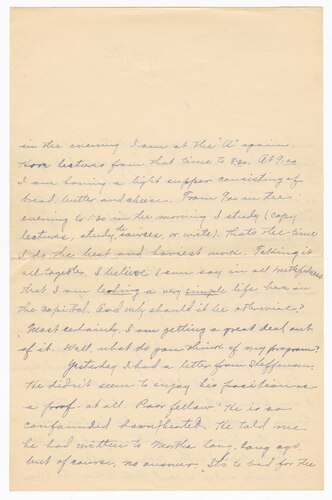 in the evening I am at the "U" again.
Have lectures from that time to 8:20. At 9:00
I am having a light supper consisting of
bread, butter and cheese. From 9:00 in the
evening to 1:30 in the morning I study (copy
lectures, study the sources, or write). Thats the time
I do the best and haviest work. Takking it
all together, I believe I can say in all truthfulness
that I am leading a very simple life here in
the capital. And why should it be otherwise?
Most certainly I am getting a great deal out
of it. Well, what do you think of my program?
Yesterday I had a letter from Steffensen.
He didn't seem to enjoy his position as
a prof. at all. Poor fellow! He is so
confounded downhearted. He told me
he had written to Martha long, long ago,
but of course, no answer. Its to bad for the